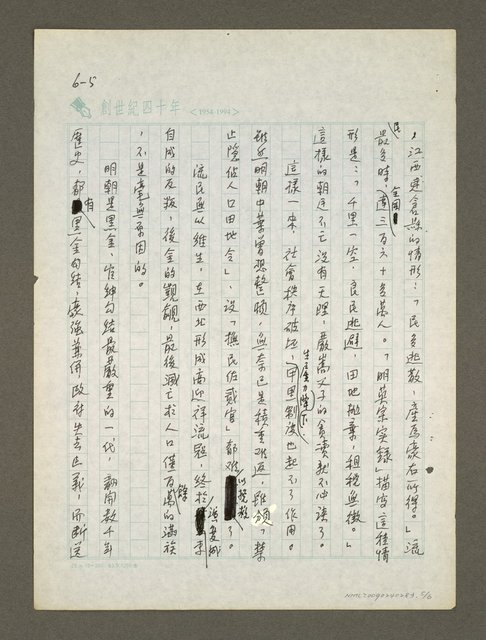 6-5
創世紀四十年 <1954-1994>
，江西建倉縣的情形：「民多逃散，產為豪右所得。」流
民最多時，全國達三百六十多萬人。「明英宗實錄」描寫這種情
形是：「千里一空，良民逃避，田地拋棄，租稅無徵。」
這樣的朝廷不亡沒有天理，嚴嵩父子的貪瀆就不必談了。
這樣一來，社會秩序破壞，生產力降下，里甲制度也起不了作用。
雖然明朝中葉曾想整頓，無奈已是積重難返，雖頒「禁
止隱佔人口田地令」、設「撫民佐貳官」都難以挽救了。
流民無以維生，在西北形成高迎祥流寇，終於演變成李
自成的反叛，後金的覬覦，最後滅亡於人口僅百餘萬的滿族
，不是毫無原因的。
明朝是黑金、官紳勾結最嚴重的一代，翻開數千年
歷史，都有黑金勾結，豪強兼併政府失去正義，而斷送
NML2009024028 5/6